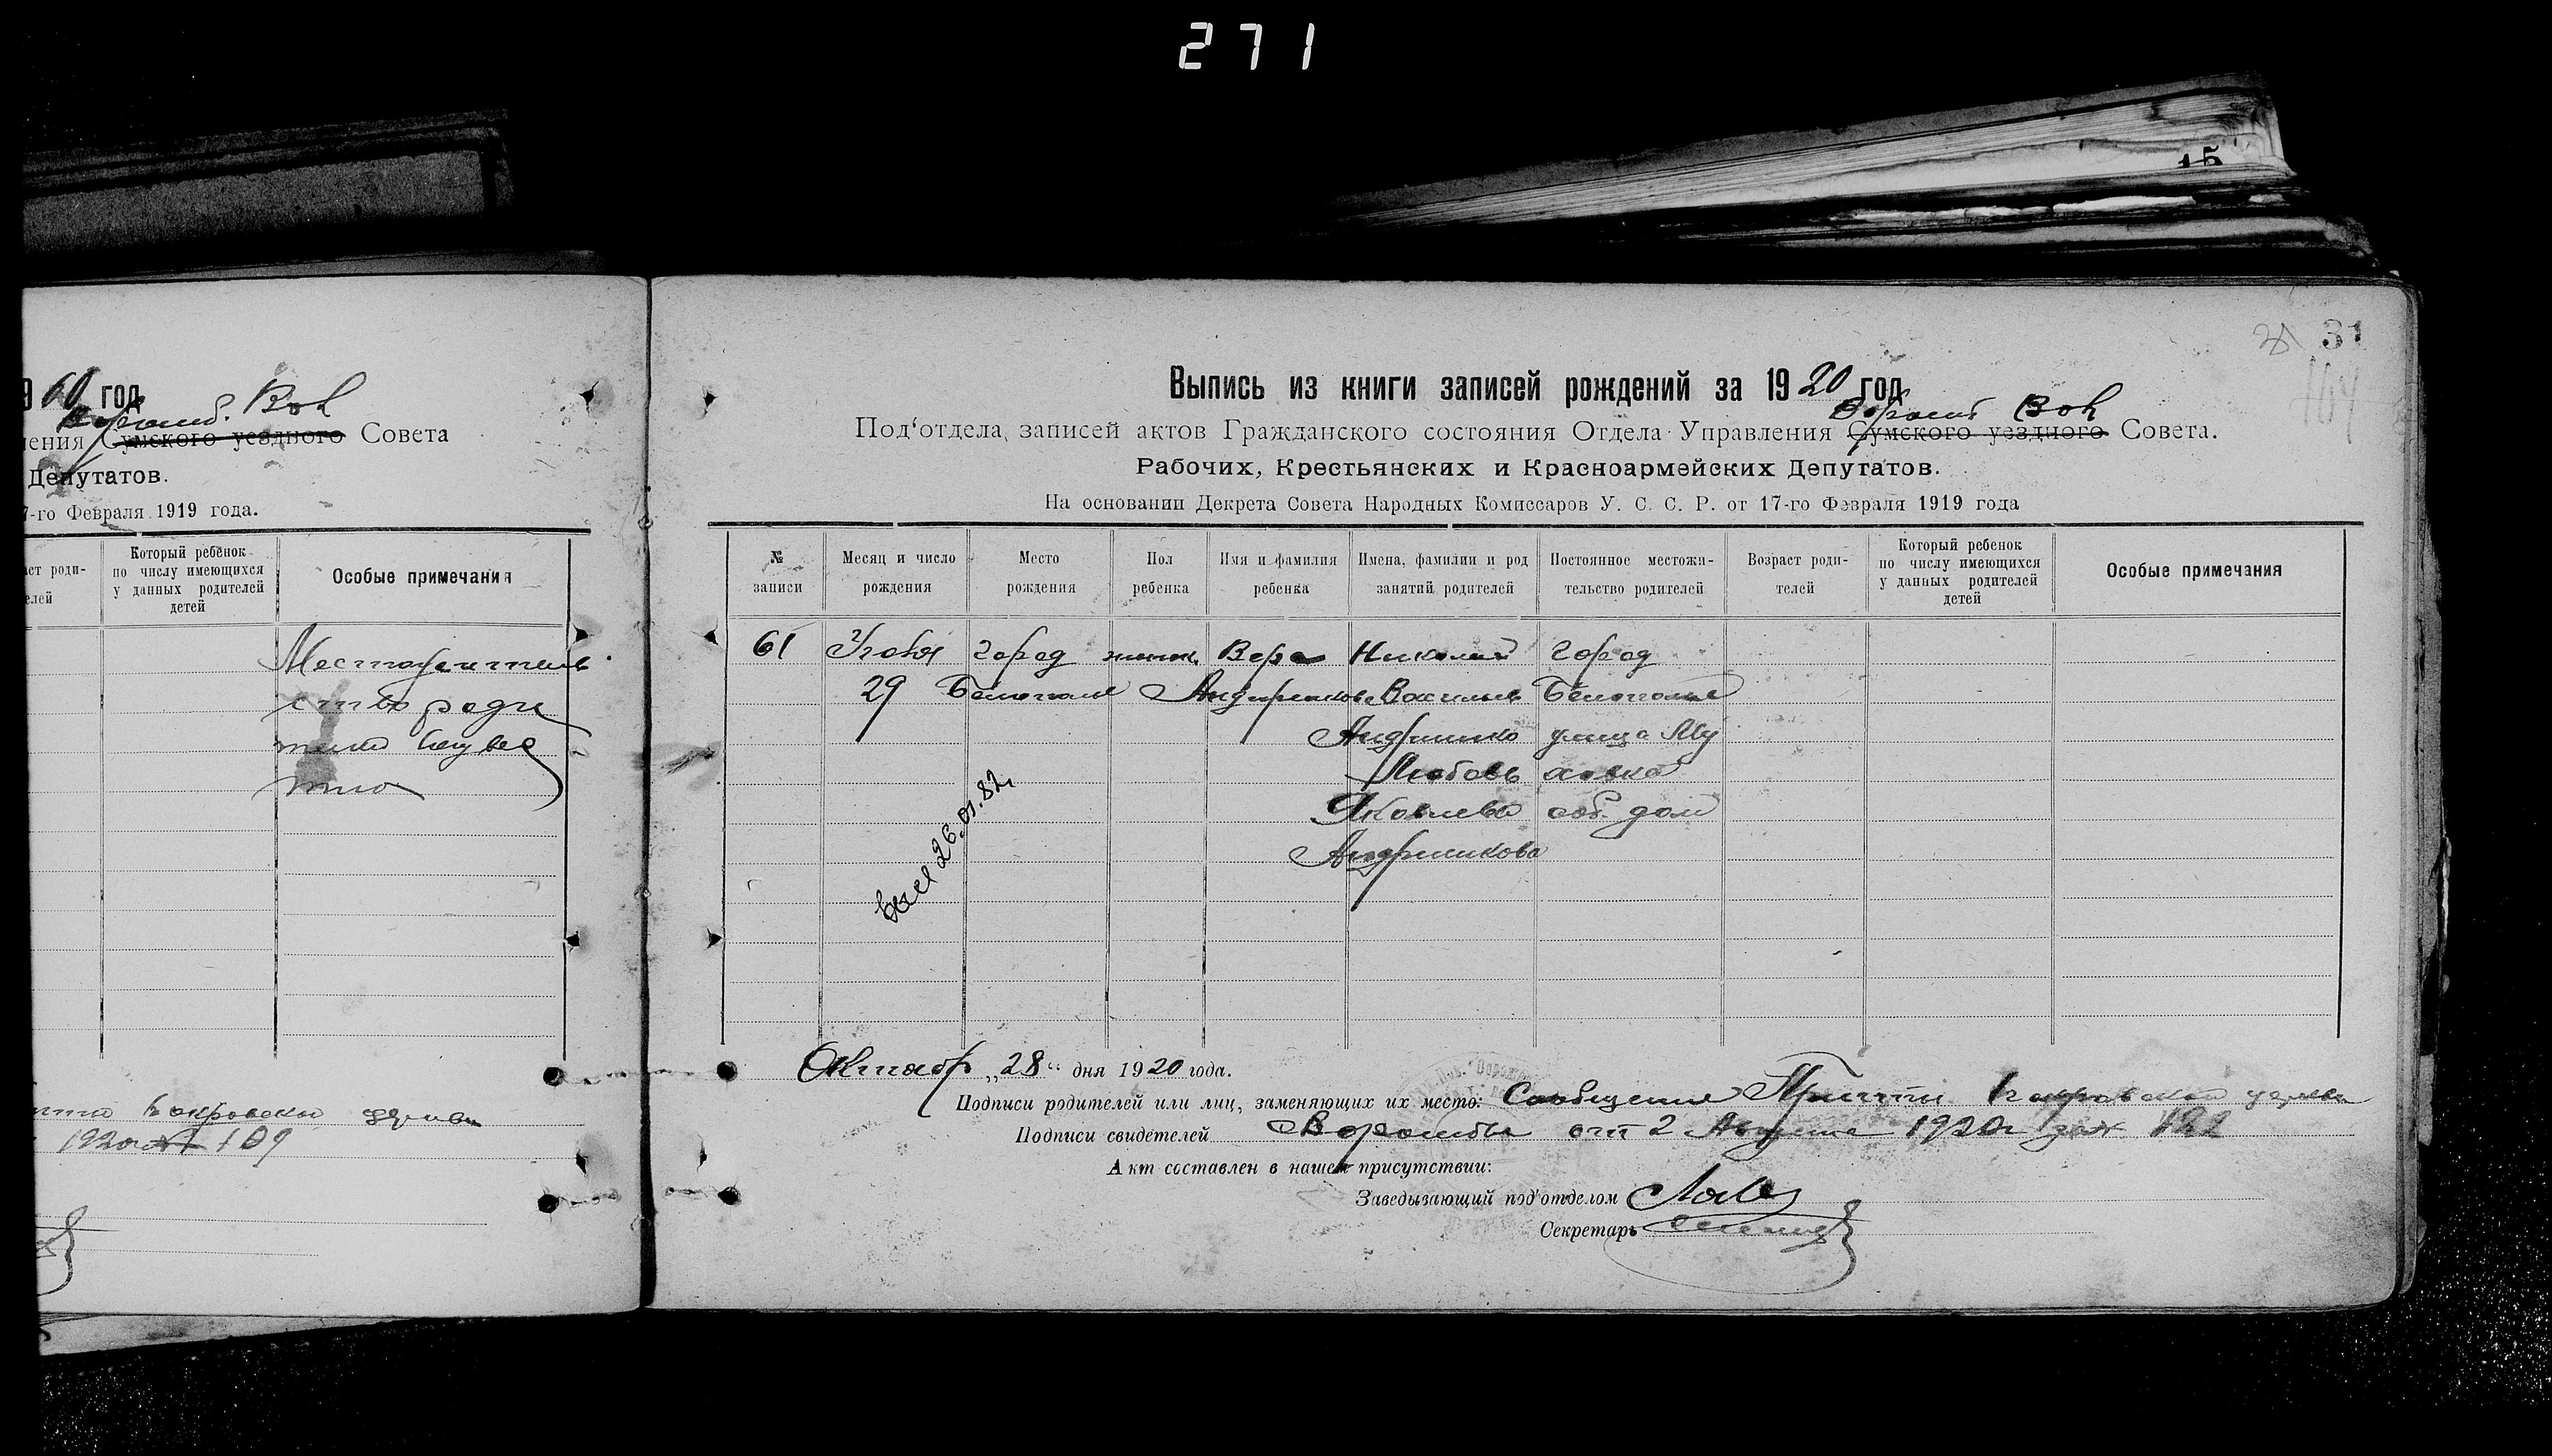 271
15
60 год
Ворожб. Вол
ления Сумского уездного Совета
Депутатов.
7-го Февраля 1919 года.
Который ребенок по числу имеющихся у данных родителей детей
Особые примечания
Местожитель
ство роди
31
Выпись из книги записей рождений за 1920 год
Ворожб Вол
Под'отдела записей актов Гражданского состояния Отдела Управления Сумского уездного Совета.
Рабочих, Крестьянских и Красноармейских Депутатов.
На основании Декрета Совета Народных Комиссаров У. С. С. Р. от 17-го Февраля 1919 года
№ записи
Месяц и число рождения
Место рождения
Пол ребенка
Имя и фамилия ребенка
Имена, фамилии и род занятий родителей
Постоянное местожительство родителей
Возраст родителей
Который ребенок по числу имеющихся у данных родителей детей
Особые примечания
61 Июля город женск. Вера Николай город
29 Белополье Васильев Белополье
улица
Любовь
Яковлева соб. дом
26.01.82
Октябр „28“ дня 1920 года.
Подписи родителей или лиц, заменяющих их место: Сообщение Причта Покровской церкви
Подписи свидетелей Ворожбы от 2 Августа 1920г
Акт составлен в нашем присутствии:
Заведывающий под'отделом
Секретарь
Покровской церкви
1920 109